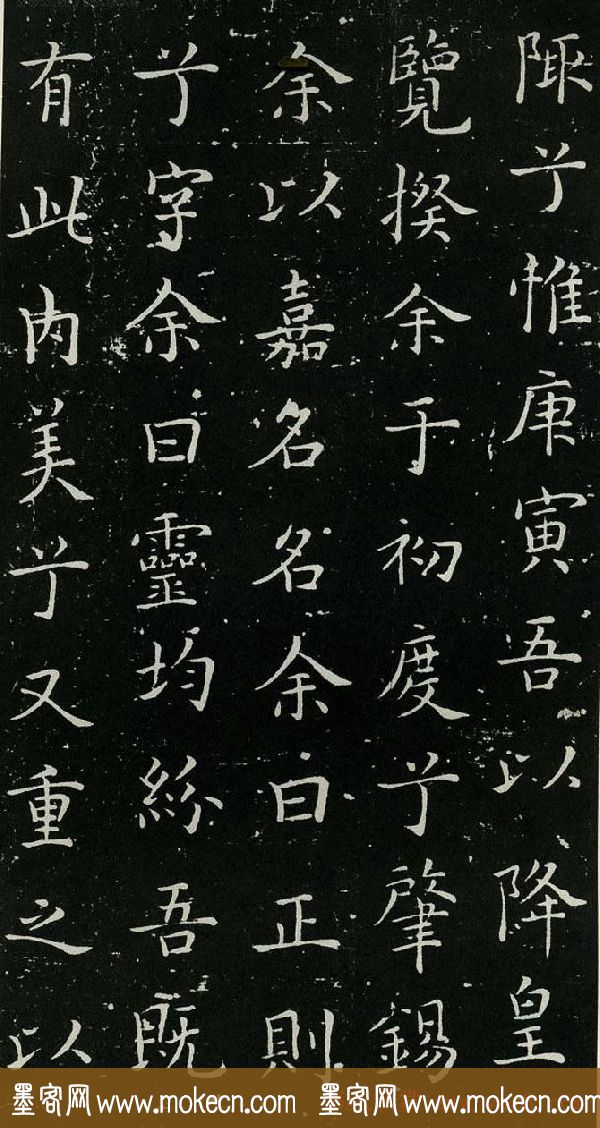 陬兮惟庚寅吾以降皇
覽揆余于初度兮肇錫
余以嘉名名余曰正則
兮字余曰靈均紛吾既
有此内美兮又重之以
墨客网 www.mokecn.com 墨客网 www.mokecn.com